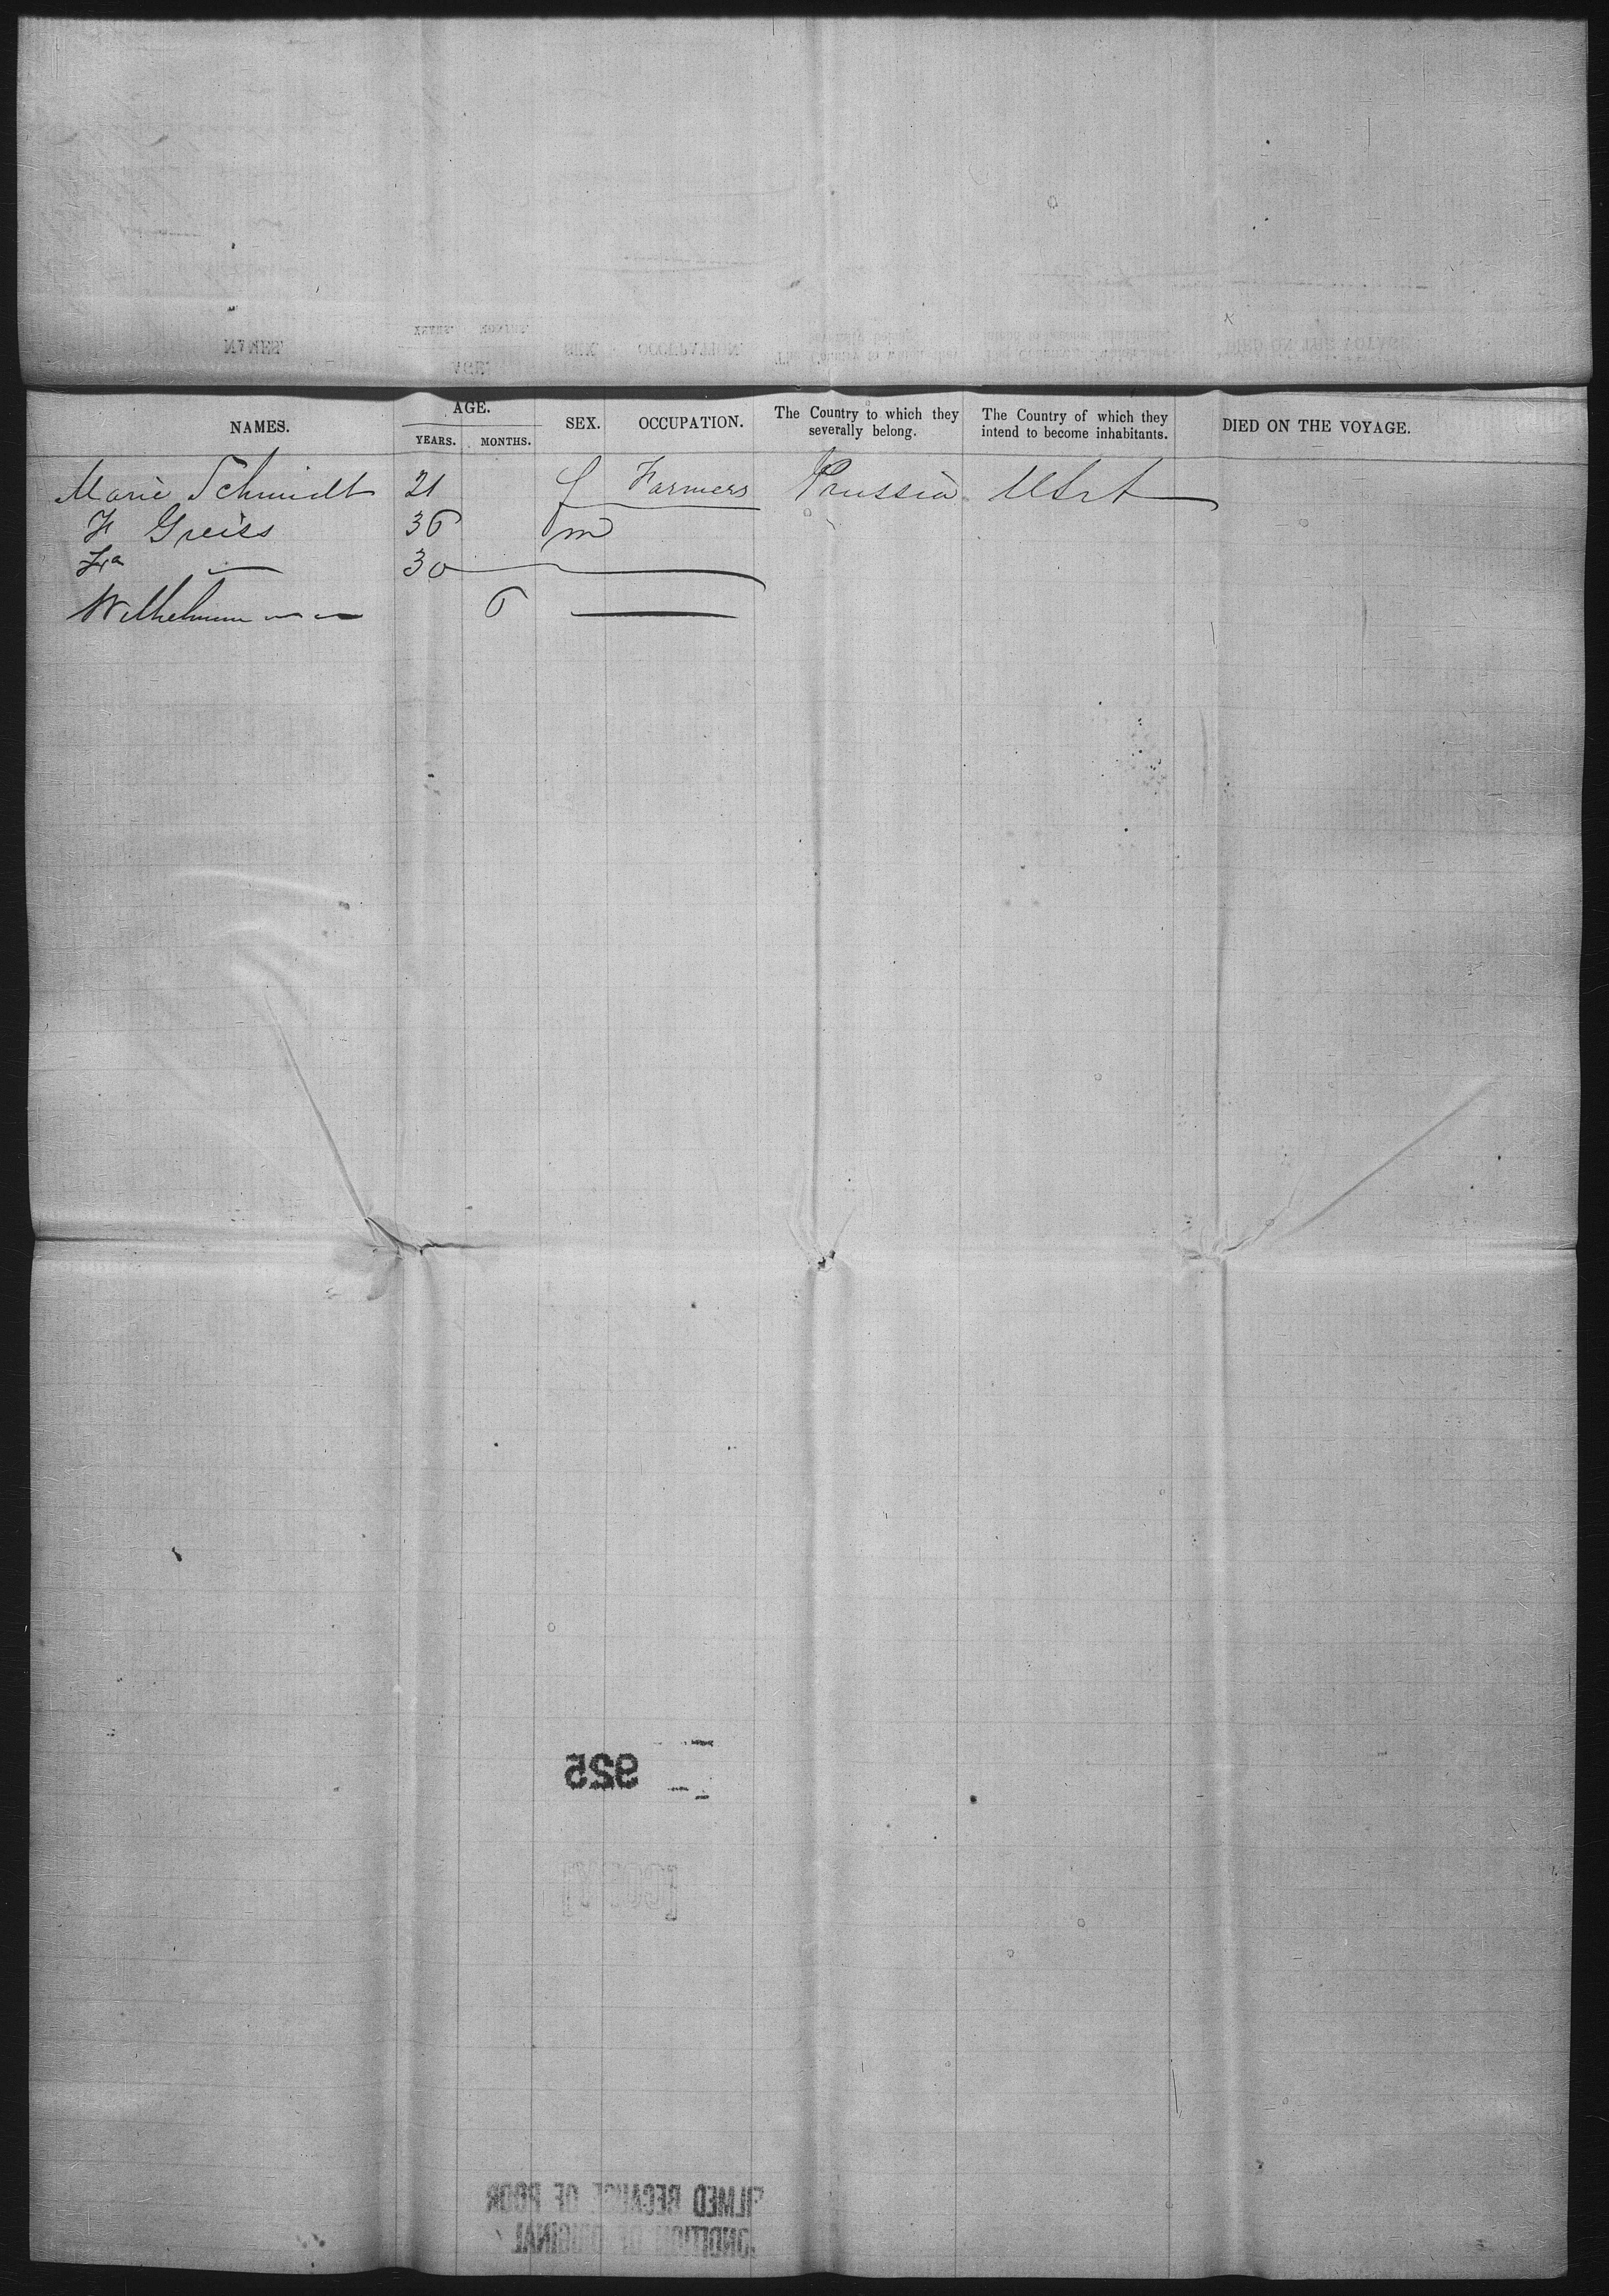 NAMES. AGE. YEARS. MONTHS. SEX. OCCUPATION. The Country to which they severally belong. The Country of which they intend to become inhabitants. DIED ON THE VOYAGE.
Marie Schmidt 21 f Farmers Prussia
F Greiss 36 m
Fr — 30
6
925
[COPY]
FILMED BECAUSE OF POOR
CONDITION OF ORIGINAL